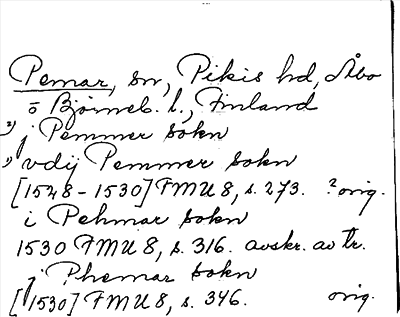 Pemar, sn, Pikis hd, Åbo
o Björneb. l., Finland
²) j Pemmer sokn
¹) vdij Pemmer sokn
[1528-1530] FMU 8, s. 273. ²orig.
i Pehmar sokn
1530 FMU 8, s. 316. avskr. av tr.
j Phemar sokn
[1530] FMU 8, s. 346. orig.